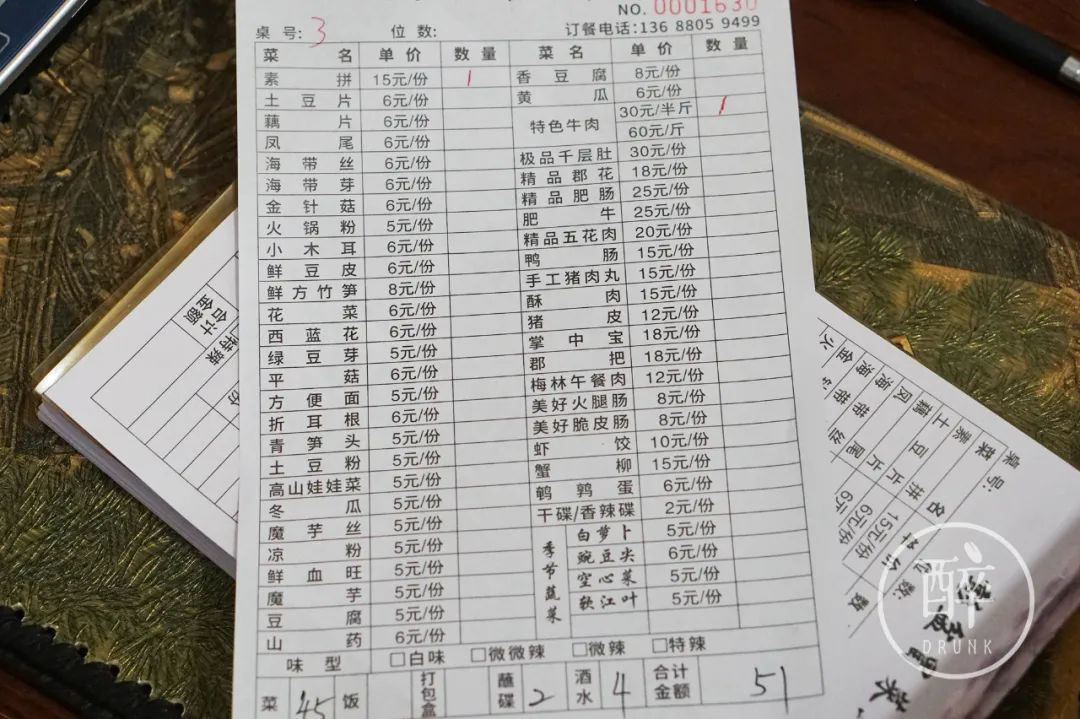 NO. 0001630
桌号: 3 位数: 订餐电话:136 8805 9499
菜名 单价 数量
素拼 15元/份 1
土豆片 6元/份
藕片 6元/份
凤尾 6元/份
海带丝 6元/份
海带芽 6元/份
金针菇 6元/份
火锅粉 5元/份
小木耳 6元/份
鲜豆皮 6元/份
鲜方竹笋 8元/份
花菜 6元/份
西蓝花 6元/份
绿豆芽 5元/份
平菇 6元/份
方便面 5元/份
折耳根 6元/份
青笋头 5元/份
土豆粉 5元/份
高山娃娃菜 5元/份
冬瓜 5元/份
魔芋丝 5元/份
凉粉 5元/份
鲜血旺 5元/份
魔芋 5元/份
豆腐 5元/份
山药 6元/份
菜名 单价 数量
香豆腐 8元/份
黄瓜 6元/份
特色牛肉 30元/半斤 1
60元/斤
极品千层肚 30元/份
精品郡花 18元/份
精品肥肠 25元/份
肥牛 25元/份
精品五花肉 20元/份
鸭肠 15元/份
手工猪肉丸 15元/份
酥肉 15元/份
猪皮 12元/份
掌中宝 18元/份
郡把 18元/份
梅林午餐肉 12元/份
美好火腿肠 8元/份
美好脆皮肠 8元/份
虾饺 10元/份
蟹柳 15元/份
鹌鹑蛋 6元/份
干碟/香辣碟 2元/份
季节蔬菜
白萝卜 5元/份
豌豆尖 6元/份
空心菜 5元/份
软江叶 5元/份
味型 □白味 □微微辣 □微辣 □特辣
菜 45 饭 打包盒 蘸碟 2 酒水 4 合计金额 51
合计
金额
特辣
桌号:
菜名
素拼 15元/份
土豆片 6元/份
藕片 6元/份
凤尾
海带丝
醉
DRUNK